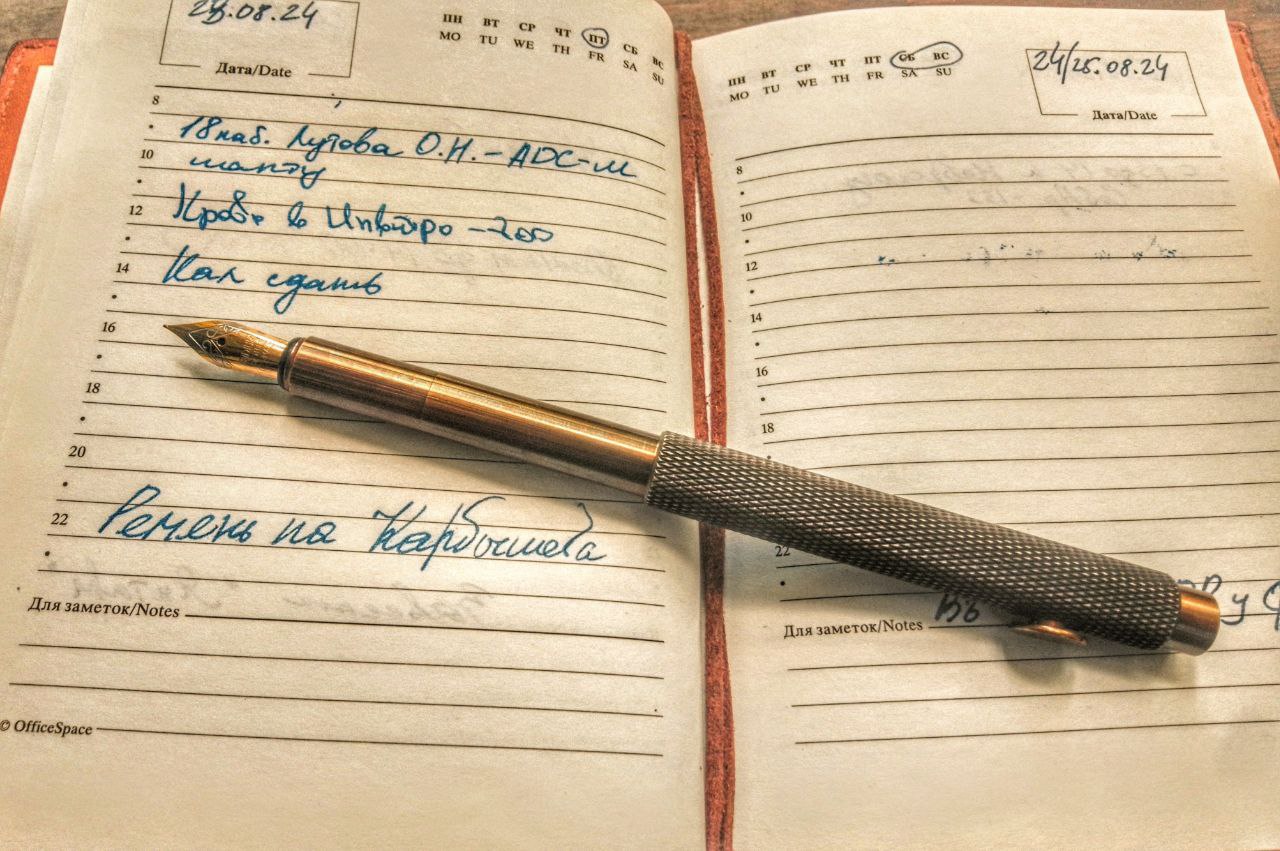 23.08.24
Дата/Date
ПН ВТ СР ЧТ ПТ СБ ВС
MO TU WE TH FR SA SU
8
18 каб. Лутова О.Н. - АДС-М
10 манту
12 Кровь в Инвитро - 200
14 Кал сдать
16
18
20
22 Ремень на Карбышева
Для заметок/Notes
© OfficeSpace
ПН ВТ СР ЧТ ПТ СБ ВС
MO TU WE TH FR SA SU
24/25.08.24
Дата/Date
8
10
12
14
16
18
22
Для заметок/Notes